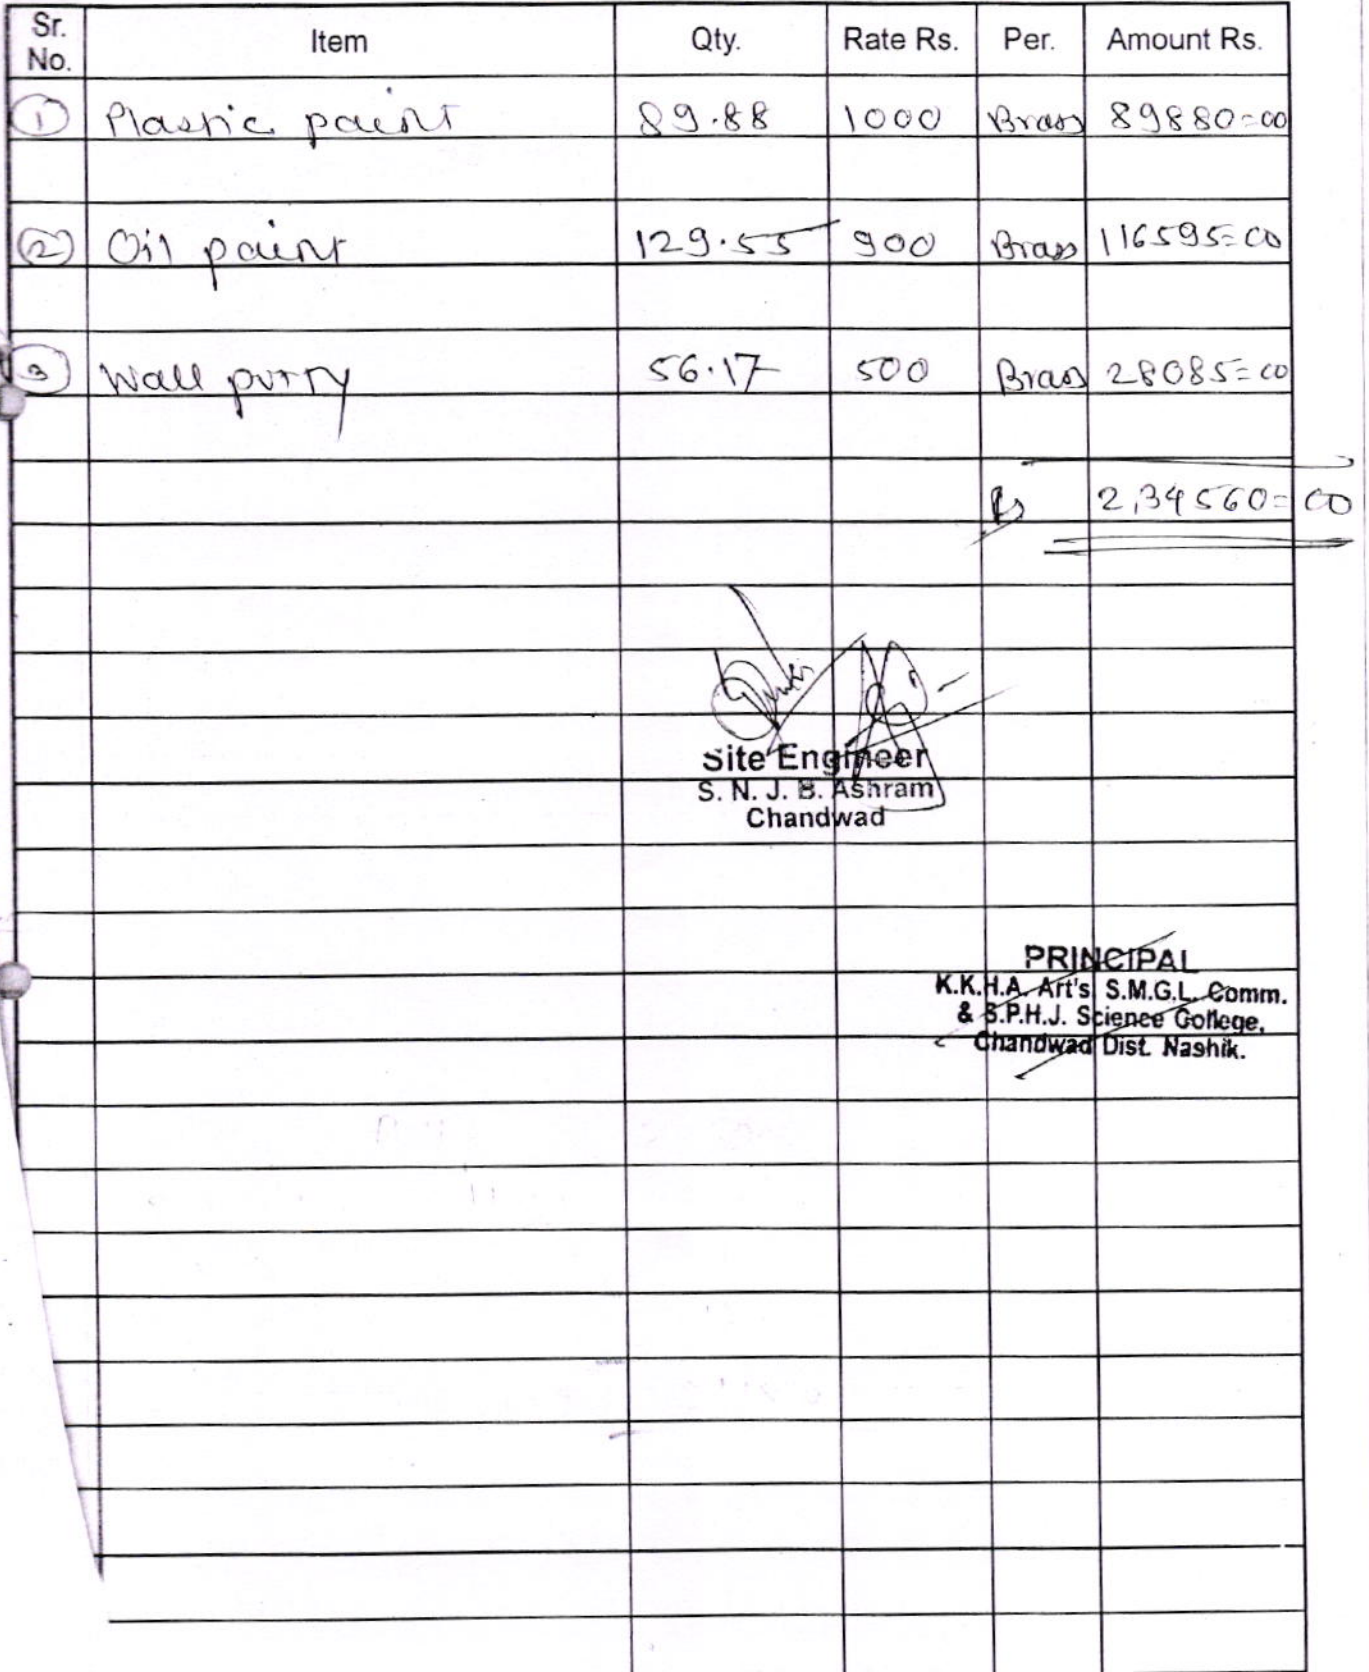 Sr. No. Item Qty. Rate Rs. Per. Amount Rs.
1 Plastic paint 89.88 1000 Brass 89880=00
2 Oil paint 129.55 900 Brass 116595=00
3 Wall putty 56.17 500 Brass 28085=00
Rs 2,34560=00
Site Engineer
S. N. J. B. Ashram
Chandwad
PRINCIPAL
K.K.H.A. Art's, S.M.G.L. Comm.
& S.P.H.J. Science College,
Chandwad Dist. Nashik.